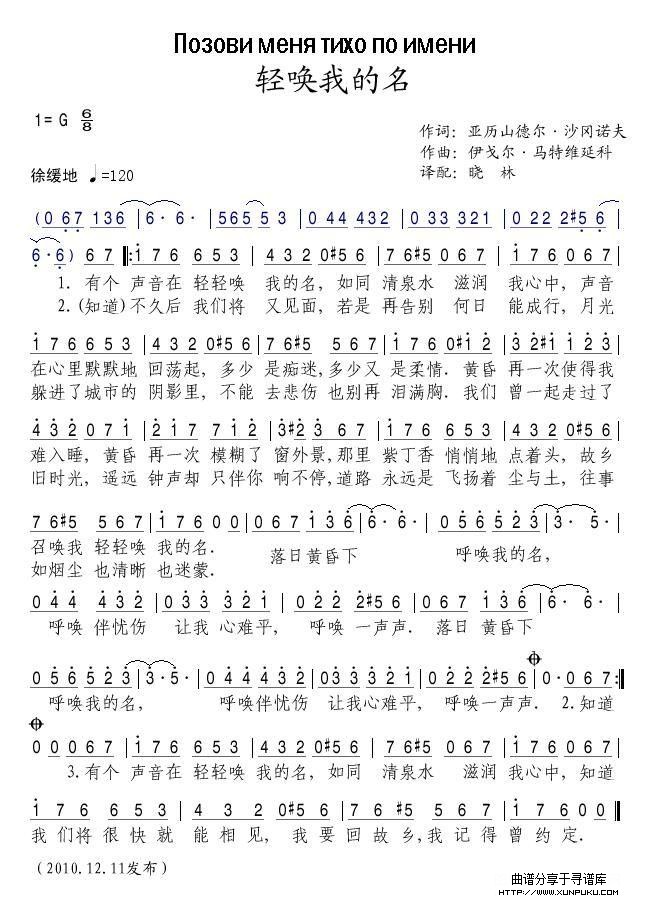 Позови меня тихо по имени
轻唤我的名
1= G 6/8
作词: 亚历山德尔·沙冈诺夫
作曲: 伊戈尔·马特维延科
徐缓地 ♩=120
译配: 晓 林
(0 6 7 1 3 6 | 6· 6· | 5 6 5 5 3 | 0 4 4 4 3 2 | 0 3 3 3 2 1 | 0 2 2 2 #5 6
6· 6) 6 7 ‖: 1 7 6 6 5 3 | 4 3 2 0 #5 6 | 7 6 #5 5 6 7 | 1 7 6 0 6 7
1. 有个 声音在 轻轻唤 我的名, 如同 清泉水 滋润 我心中, 声音
2. (知道) 不久后 我们将 又见面, 若是 再告别 何日 能成行, 月光
1 7 6 6 5 3 | 4 3 2 0 #5 6 | 7 6 #5 5 6 7 | 1 7 6 0 #1 2 | 3 2 #1 1 2 3
在心里默默地 回荡起, 多少 是痴迷, 多少又 是柔情. 黄昏 再一次使得我
躲进了城市的 阴影里, 不能 去悲伤 也别再 泪满胸. 我们 曾一起走过了
4 3 2 0 7 1 | 2 1 7 7 1 2 | 3 #2 3 6 7 | 1 7 6 6 5 3 | 4 3 2 0 #5 6
难入睡, 黄昏 再一次 模糊了 窗外景, 那里 紫丁香 悄悄地 点着头, 故乡
旧时光, 遥远 钟声却 只伴你 响不停, 道路 永远是 飞扬着 尘与土, 往事
7 6 #5 5 6 7 | 1 7 6 0 0 | 0 6 7 1 3 6 | 6· 6· | 0 5 6 5 2 3 | 3· 5·
召唤我 轻轻唤 我的名. 落日黄昏下 呼唤我的名,
如烟尘 也清晰 也迷蒙.
0 4 4 4 3 2 | 0 3 3 3 2 1 | 0 2 2 2 #5 6 | 0 6 7 1 3 6 | 6· 6·
呼唤 伴忧伤 让我 心难平, 呼唤 一声声. 落日 黄昏下
0 5 6 5 2 3 | 3· 5· | 0 4 4 4 3 2 | 0 3 3 3 2 1 | 0 2 2 2 #5 6 | 0· 0 6 7 :‖
呼唤我的名, 呼唤伴忧伤 让我心难平, 呼唤一声声. 2. 知道
0 0 0 6 7 | 1 7 6 6 5 3 | 4 3 2 0 #5 6 | 7 6 #5 5 6 7 | 1 7 6 0 6 7
3. 有个 声音在 轻轻唤 我的名, 如同 清泉水 滋润 我心中, 知道
1 7 6 6 5 3 | 4 3 2 0 #5 6 | 7 6 #5 5 6 7 | 1 7 6 0 0 ‖
我们将很快就 能相见, 我要回故乡, 我记得曾约定.
(2010.12.11发布)
曲谱分享于寻谱库
HTTP://WWW.XUNPUKU.COM